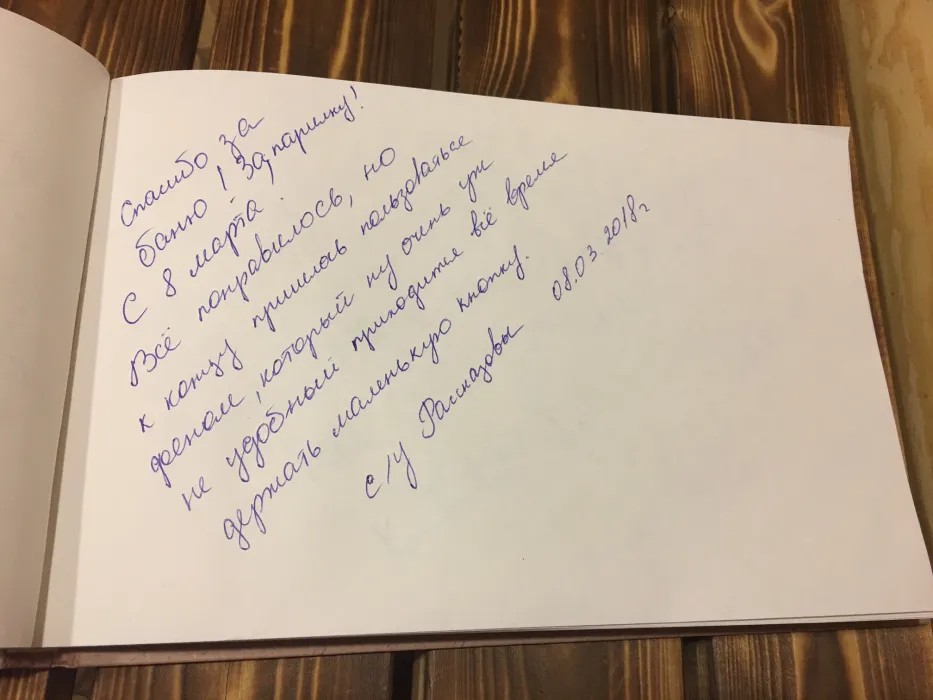 Спасибо за
баню! За парилку!
С 8 марта!
Всё понравилось, но
к концу пришлось пользоваться
феном, который ну очень уж
не удобный приходится всё время
держать маленькую кнопку.
с/у Рассказовы 08.03.2018г